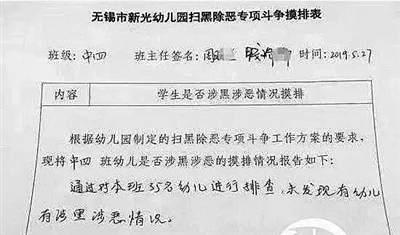 无锡市新光幼儿园扫黑除恶专项斗争摸排表
班级:中四 班主任签名: 时间:2019.5.27
内容 学生是否涉黑涉恶情况摸排
根据幼儿园制定的扫黑除恶专项斗争工作方案的要求,
现将中四 班幼儿是否涉黑涉恶的摸排情况报告如下:
通过对本班35名幼儿进行排查,未发现有幼儿
有涉黑涉恶情况。